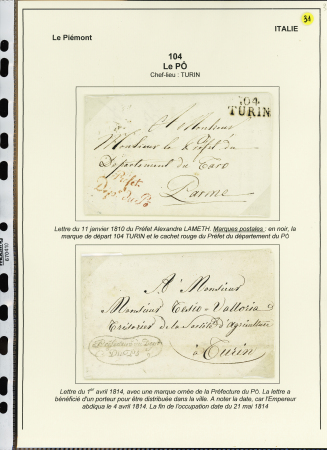 ITALIE
51
Le Piémont
104
Le PÔ
Chef-lieu : TURIN
104
TURIN
A Monsieur
Monsieur le Préfet du
Département du Taro
Parme
Préfet
Dépt du Pô
Lettre du 11 janvier 1810 du Préfet Alexandre LAMETH. Marques postales : en noir, la
marque de départ 104 TURIN et le cachet rouge du Préfet du département du Pô
A Monsieur
Monsieur
Trésorier de la Société d'Agriculture
à Turin
Lettre du 1er avril 1814, avec une marque ornée de la Préfecture du Pô. La lettre a
bénéficié d'un porteur pour être distribuée dans la ville. A noter la date, car l'Empereur
abdiqua le 4 avril 1814. La fin de l'occupation date du 21 mai 1814